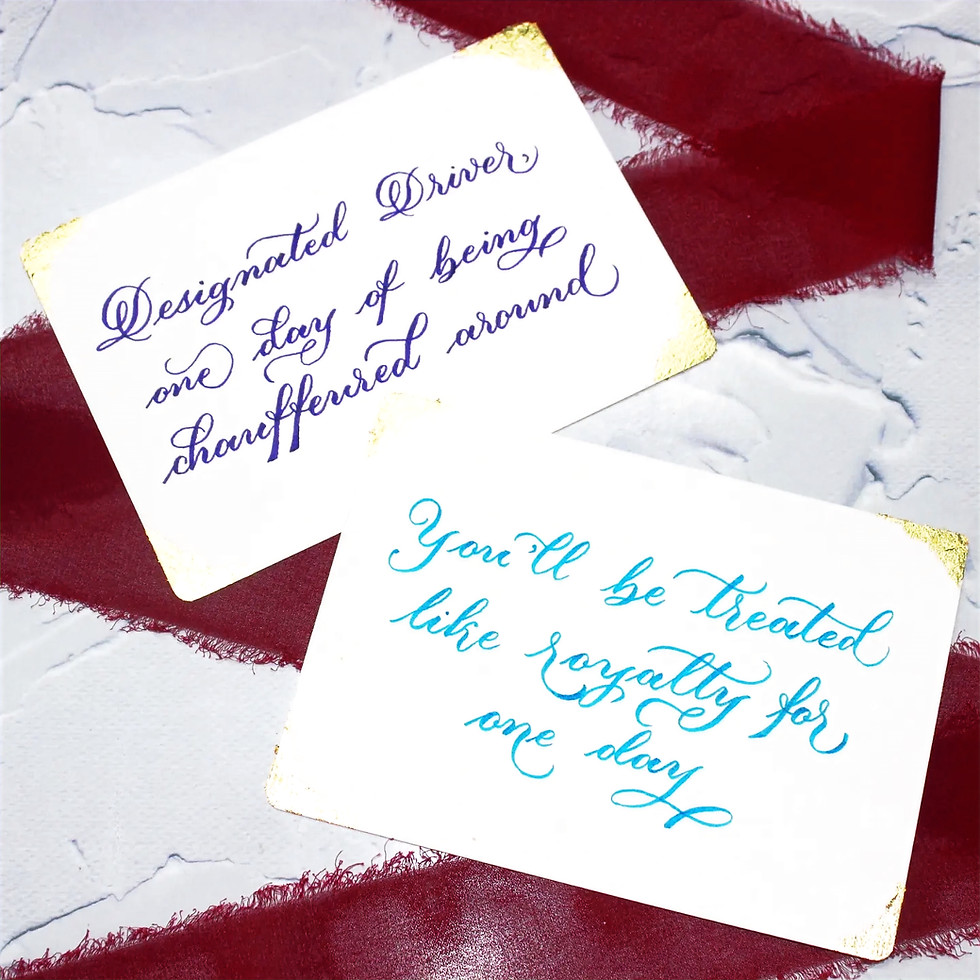 Designated Driver,
one day of being
chauffeured around
You'll be treated
like royalty for
one day